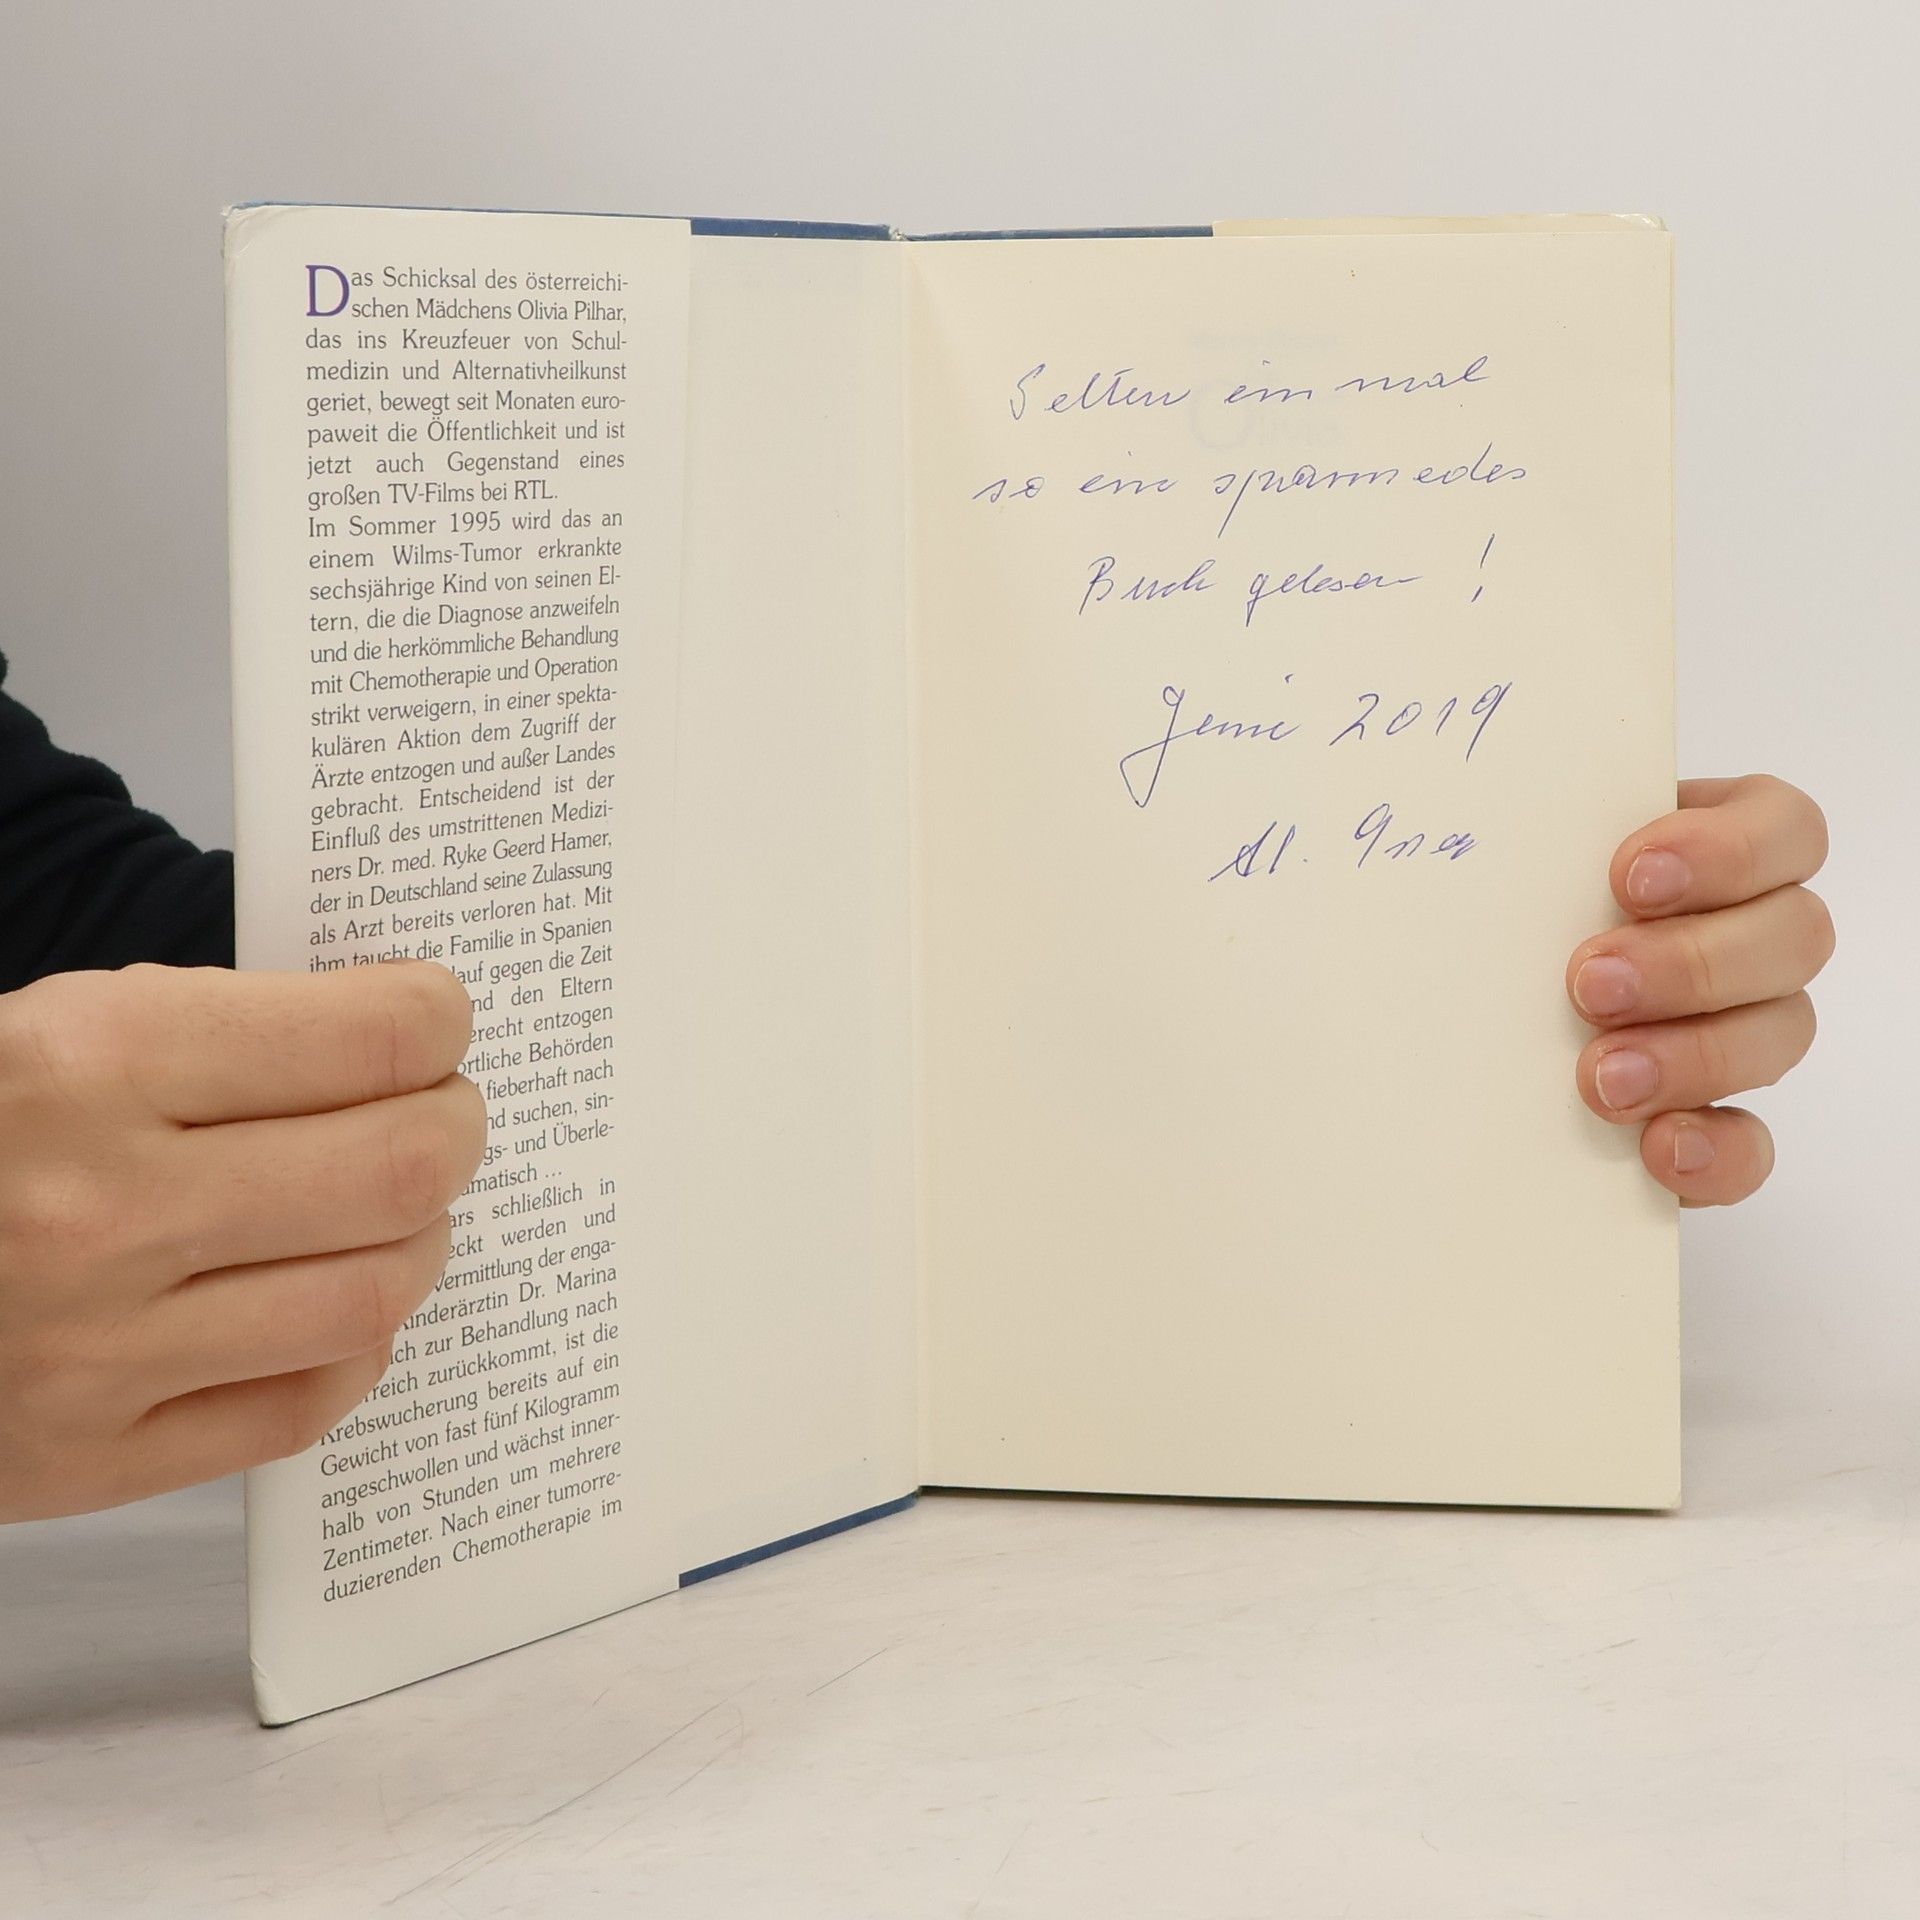 Das Schicksal des österreichi-
schen Mädchens Olivia Pilhar,
das ins Kreuzfeuer von Schul-
medizin und Alternativheilkunst
geriet, bewegt seit Monaten euro-
paweit die Öffentlichkeit und ist
jetzt auch Gegenstand eines
großen TV-Films bei RTL.
Im Sommer 1995 wird das an
einem Wilms-Tumor erkrankte
sechsjährige Kind von seinen El-
tern, die die Diagnose anzweifeln
und die herkömmliche Behandlung
mit Chemotherapie und Operation
strikt verweigern, in einer spekta-
kulären Aktion dem Zugriff der
Ärzte entzogen und außer Landes
gebracht. Entscheidend ist der
Einfluß des umstrittenen Medizi-
ners Dr. med. Ryke Geerd Hamer,
der in Deutschland seine Zulassung
als Arzt bereits verloren hat. Mit
ihm taucht die Familie in Spanien
lauf gegen die Zeit
nd den Eltern
erecht entzogen
örtliche Behörden
fieberhaft nach
nd suchen, sin-
gs- und Überle-
matisch ...
ars schließlich in
eckt werden und
Vermittlung der enga-
Kinderärztin Dr. Marina
ich zur Behandlung nach
rreich zurückkommt, ist die
Krebswucherung bereits auf ein
Gewicht von fast fünf Kilogramm
angeschwollen und wächst inner-
halb von Stunden um mehrere
Zentimeter. Nach einer tumorre-
duzierenden Chemotherapie im
Selten einmal
so ein spannedes
Buch gelesen !
Juni 2019